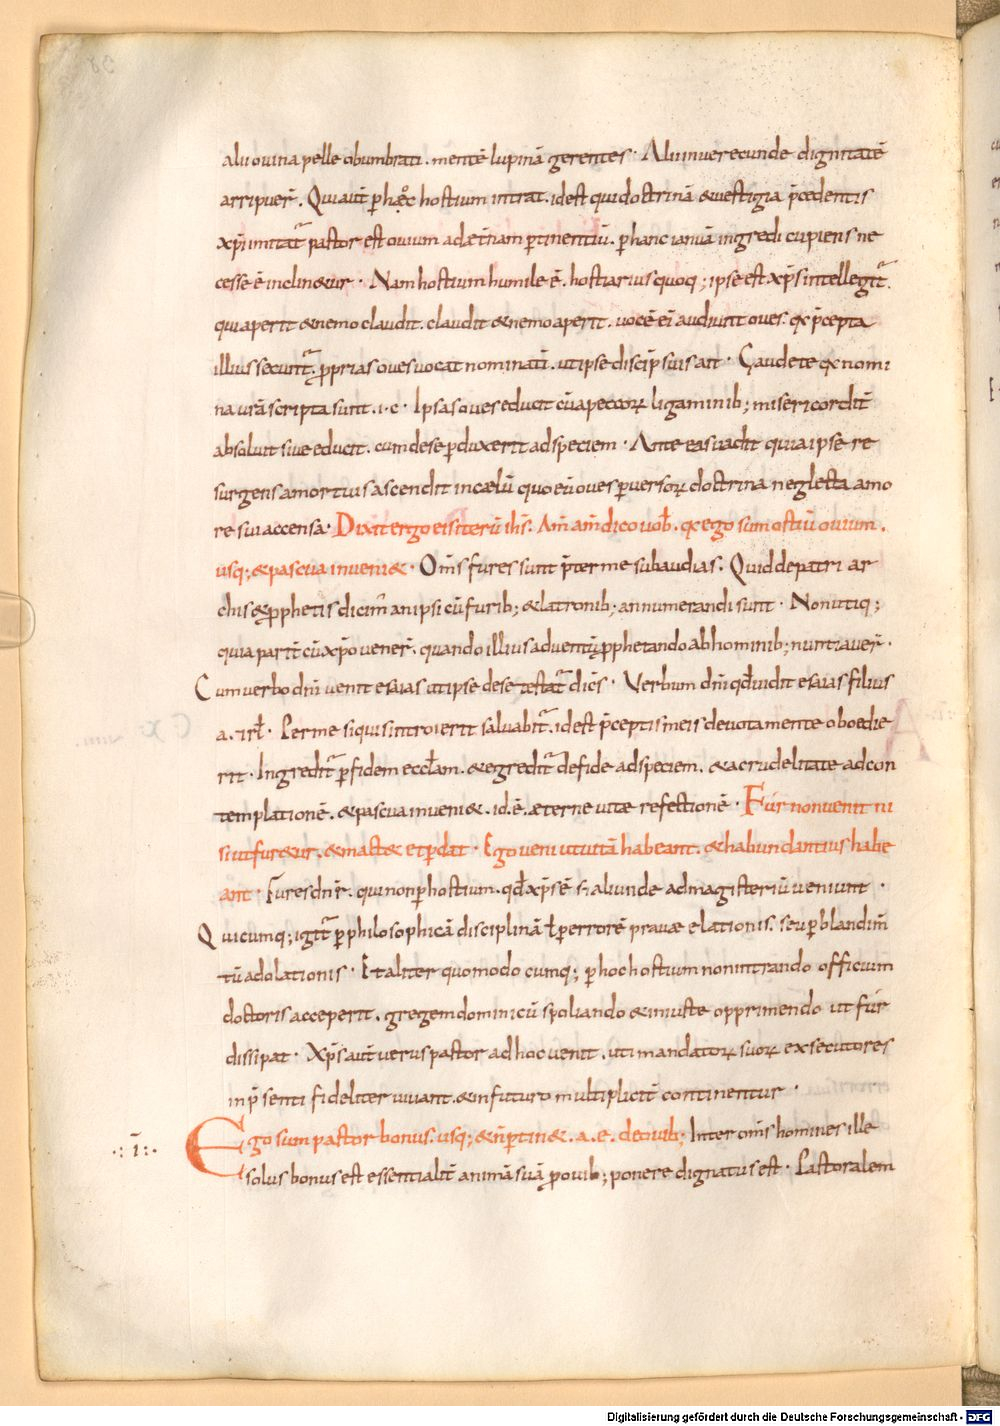 alii ovina pelle obumbrati. mentē lupinā gerentes. Alii inverecunde dignitatē
arripuer̄. Qui aut̄ p̄ hoc hostium intrat. id est qui doctrinā & vestigia p̄cedentis
xp̄i imitat̄ pastor est ovium ad æt̄nam p̄tinentiū. p̄ hanc ianuā ingredi cupiens ne
cesse ē inclin&ur. Nam hostium humile ē. hostiarius quoq; ipse est xp̄s intellegit̄.
qui aperit & nemo claudit. claudit & nemo aperit. vocē ei audiunt oves. qƺ p̄cepta
illius secunt̄. p̄prias oves vocat nominatī. ut ipse discip̄ suis ait. Gaudete qƺ nomi
na urā scripta sunt. i. c. Ipsas oves educit cū a peccorꝝ ligaminib; misericordit̄
absoluit sive educit. cum de se p̄duxerit ad speciem. Ante eas vadit quia ipse re
surgens a mortuis ascendit in cælū quo eū oves p̄versorꝝ doctrina neglecta amo
re sui accensa. Dixit ergo eis iterū ih̄s. Am̄ am̄ dico vob̄. qƺ ego sum ostiū ovium.
usq; & pascua inveni&. Om̄s fures sunt p̄ter me subaudias. Quid de patri ar
chis & p̄phetis dicim̄ an ipsi cū furib; & latronib; annumerandi sunt. Non utiq;
quia parit̄ cū xp̄o vener̄. quando illius adventū p̄phetando ab hominib; nuntiaver̄.
Cum verbo dn̄i venit esaias ut ipse de se testat̄ dic̄s. Verbum dn̄i qd̄ vidit esaias filius
a. irl̄. Per me si quis introierit salvabit̄. id est p̄ceptis meis devota mente oboedie
rit. Ingredit̄ p̄ fidem eccl̄am. & egredit̄ de fide ad speciem. & a crudelitate ad con
templationē. & pascua inveni&. id. ē. æterne vitæ refectionē. Fur non venit ni
si ut fur&ur. & mact& et p̄dat. Ego veni ut vitā habeant. & habundantius habe
ant. Fures dn̄r. qui non p̄ hostium. qd̄ xp̄s ē s; aliunde ad magisteriū veniunt.
Quicumq; igit̄ p̄ philosophicā disciplinā ł p̄ errorē pravæ elationis. seu p̄ blandim̄
tū adolationis. Et aliter quomodocumq; p̄ hoc hostium non intrando officium
doctoris acceperit. gregem dominicū spoliando & iniuste opprimendo ut fur
dissipat. Xp̄s aut̄ verus pastor ad hoc venit. uti mandatorꝝ suorꝝ exsecutores
in p̄senti fideliter vivant. & in futuro multiplicit̄ continentur.
·:ī:·
Ego sum pastor bonus. usq; & n̄ p̄tin&. a. e. de ovib; Inter om̄s homines ille
solus bonus est essentialit̄ animā suā p̄ ovib; ponere dignatus est. Pastoralem
Digitalisierung gefördert durch die Deutsche Forschungsgemeinschaft - DFG